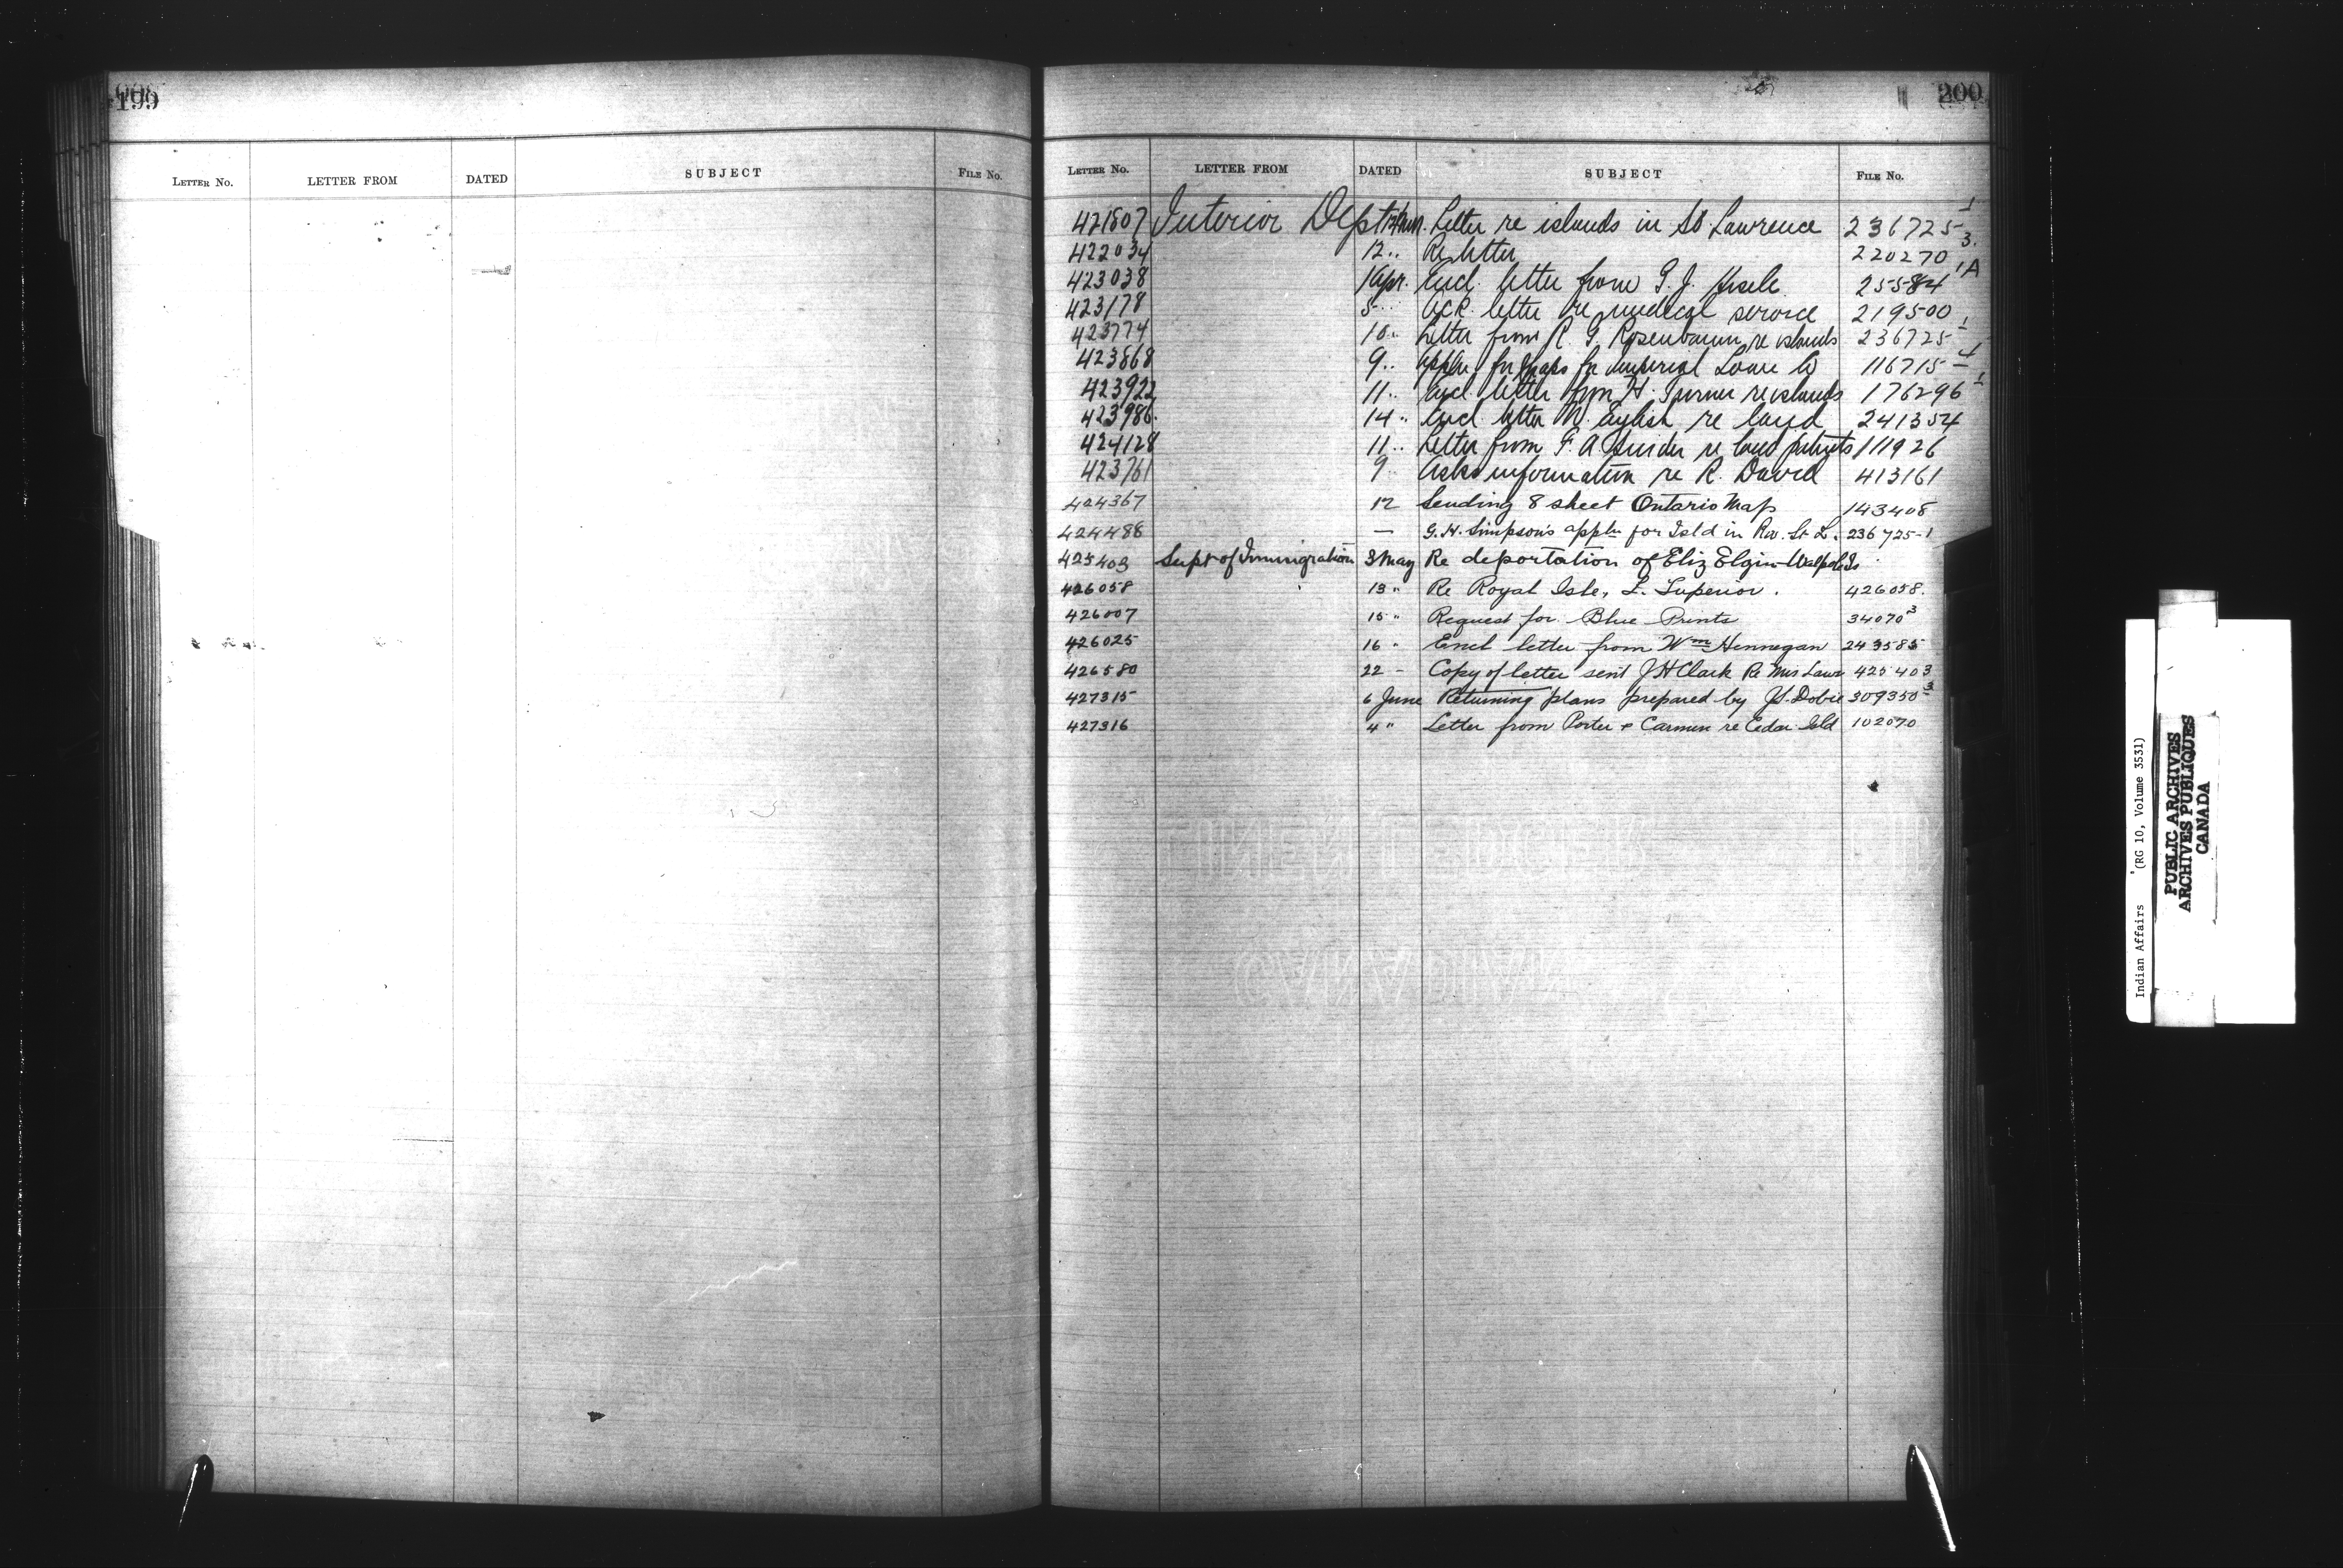 199
LETTER NO. LETTER FROM DATED SUBJECT FILE NO.
200
LETTER NO. LETTER FROM DATED SUBJECT FILE NO.
421807 Interior Dept Letter re islands in St Lawrence 236725-1
422034 12 " Re letter 220270 3.
423038 1 Apr. Encl. letter from G. J. 25584 1A
423178 5 " Ack. letter re medical service 219500
423774 10 " Letter from R. G. Rosenbaum re islands 236725-1
423868 9 " Appln for maps for Imperial Loan Co 116715-4
423922 11 " Encl. letter from H. Turner re islands 176296-1
423986 14 " Encl letter re land 241354
424128 11 " Letter from F. A Snider re land patents 111926
423761 9 Asks information re R. David 413161
424367 12 Sending 8 sheet Ontario Map 143408
424488 — G. H. Simpson's appln for Isld in Riv. St L. 236725-1
425403 Supt of Immigration 3 May Re deportation of Eliz Elgin Walpole Is
426058 13 " Re Royal Isle, L. Superior. 426058.
426007 15 " Request for Blue Prints 34070 3
426025 16 " Encl letter from Wm Hennegan 243585
426580 22 - Copy of letter sent J H Clark Re Mrs Lawr 425403
427315 6 June Returning plans prepared by J.S. Dobie 309350-3
427316 4 " Letter from Porter & Carmen re Cedar Isld 102070
Indian Affairs (RG 10, Volume 3531)
PUBLIC ARCHIVES
ARCHIVES PUBLIQUES
CANADA